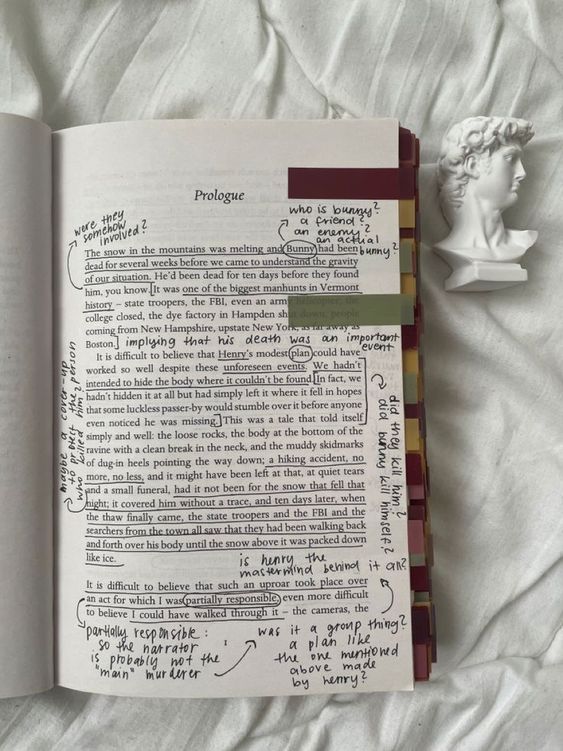 Prologue
who is bunny?
a friend?
an enemy?
an actual
bunny?
were they
somehow
involved?
The snow in the mountains was melting and Bunny had been
dead for several weeks before we came to understand the gravity
of our situation. He'd been dead for ten days before they found
him, you know. It was one of the biggest manhunts in Vermont
history – state troopers, the FBI, even an army helicopter; the
college closed, the dye factory in Hampden shut down, people
coming from New Hampshire, upstate New York, as far away as
Boston.
implying that his death was an important
event
It is difficult to believe that Henry's modest plan could have
worked so well despite these unforeseen events. We hadn't
intended to hide the body where it couldn't be found. In fact, we
hadn't hidden it at all but had simply left it where it fell in hopes
that some luckless passer-by would stumble over it before anyone
even noticed he was missing. This was a tale that told itself
simply and well: the loose rocks, the body at the bottom of the
ravine with a clean break in the neck, and the muddy skidmarks
of dug-in heels pointing the way down; a hiking accident, no
more, no less, and it might have been left at that, at quiet tears
and a small funeral, had it not been for the snow that fell that
night; it covered him without a trace, and ten days later, when
the thaw finally came, the state troopers and the FBI and the
searchers from the town all saw that they had been walking back
and forth over his body until the snow above it was packed down
like ice.
maybe a cover-up
to protect the person
who killed him?
did they kill him?
did bunny kill himself?
is henry the
mastermind behind it all?
It is difficult to believe that such an uproar took place over
an act for which I was partially responsible, even more difficult
to believe I could have walked through it – the cameras, the
partially responsible:
so the narrator
is probably not the
"main" murderer
was it a group thing?
a plan like
the one mentioned
above made
by henry?